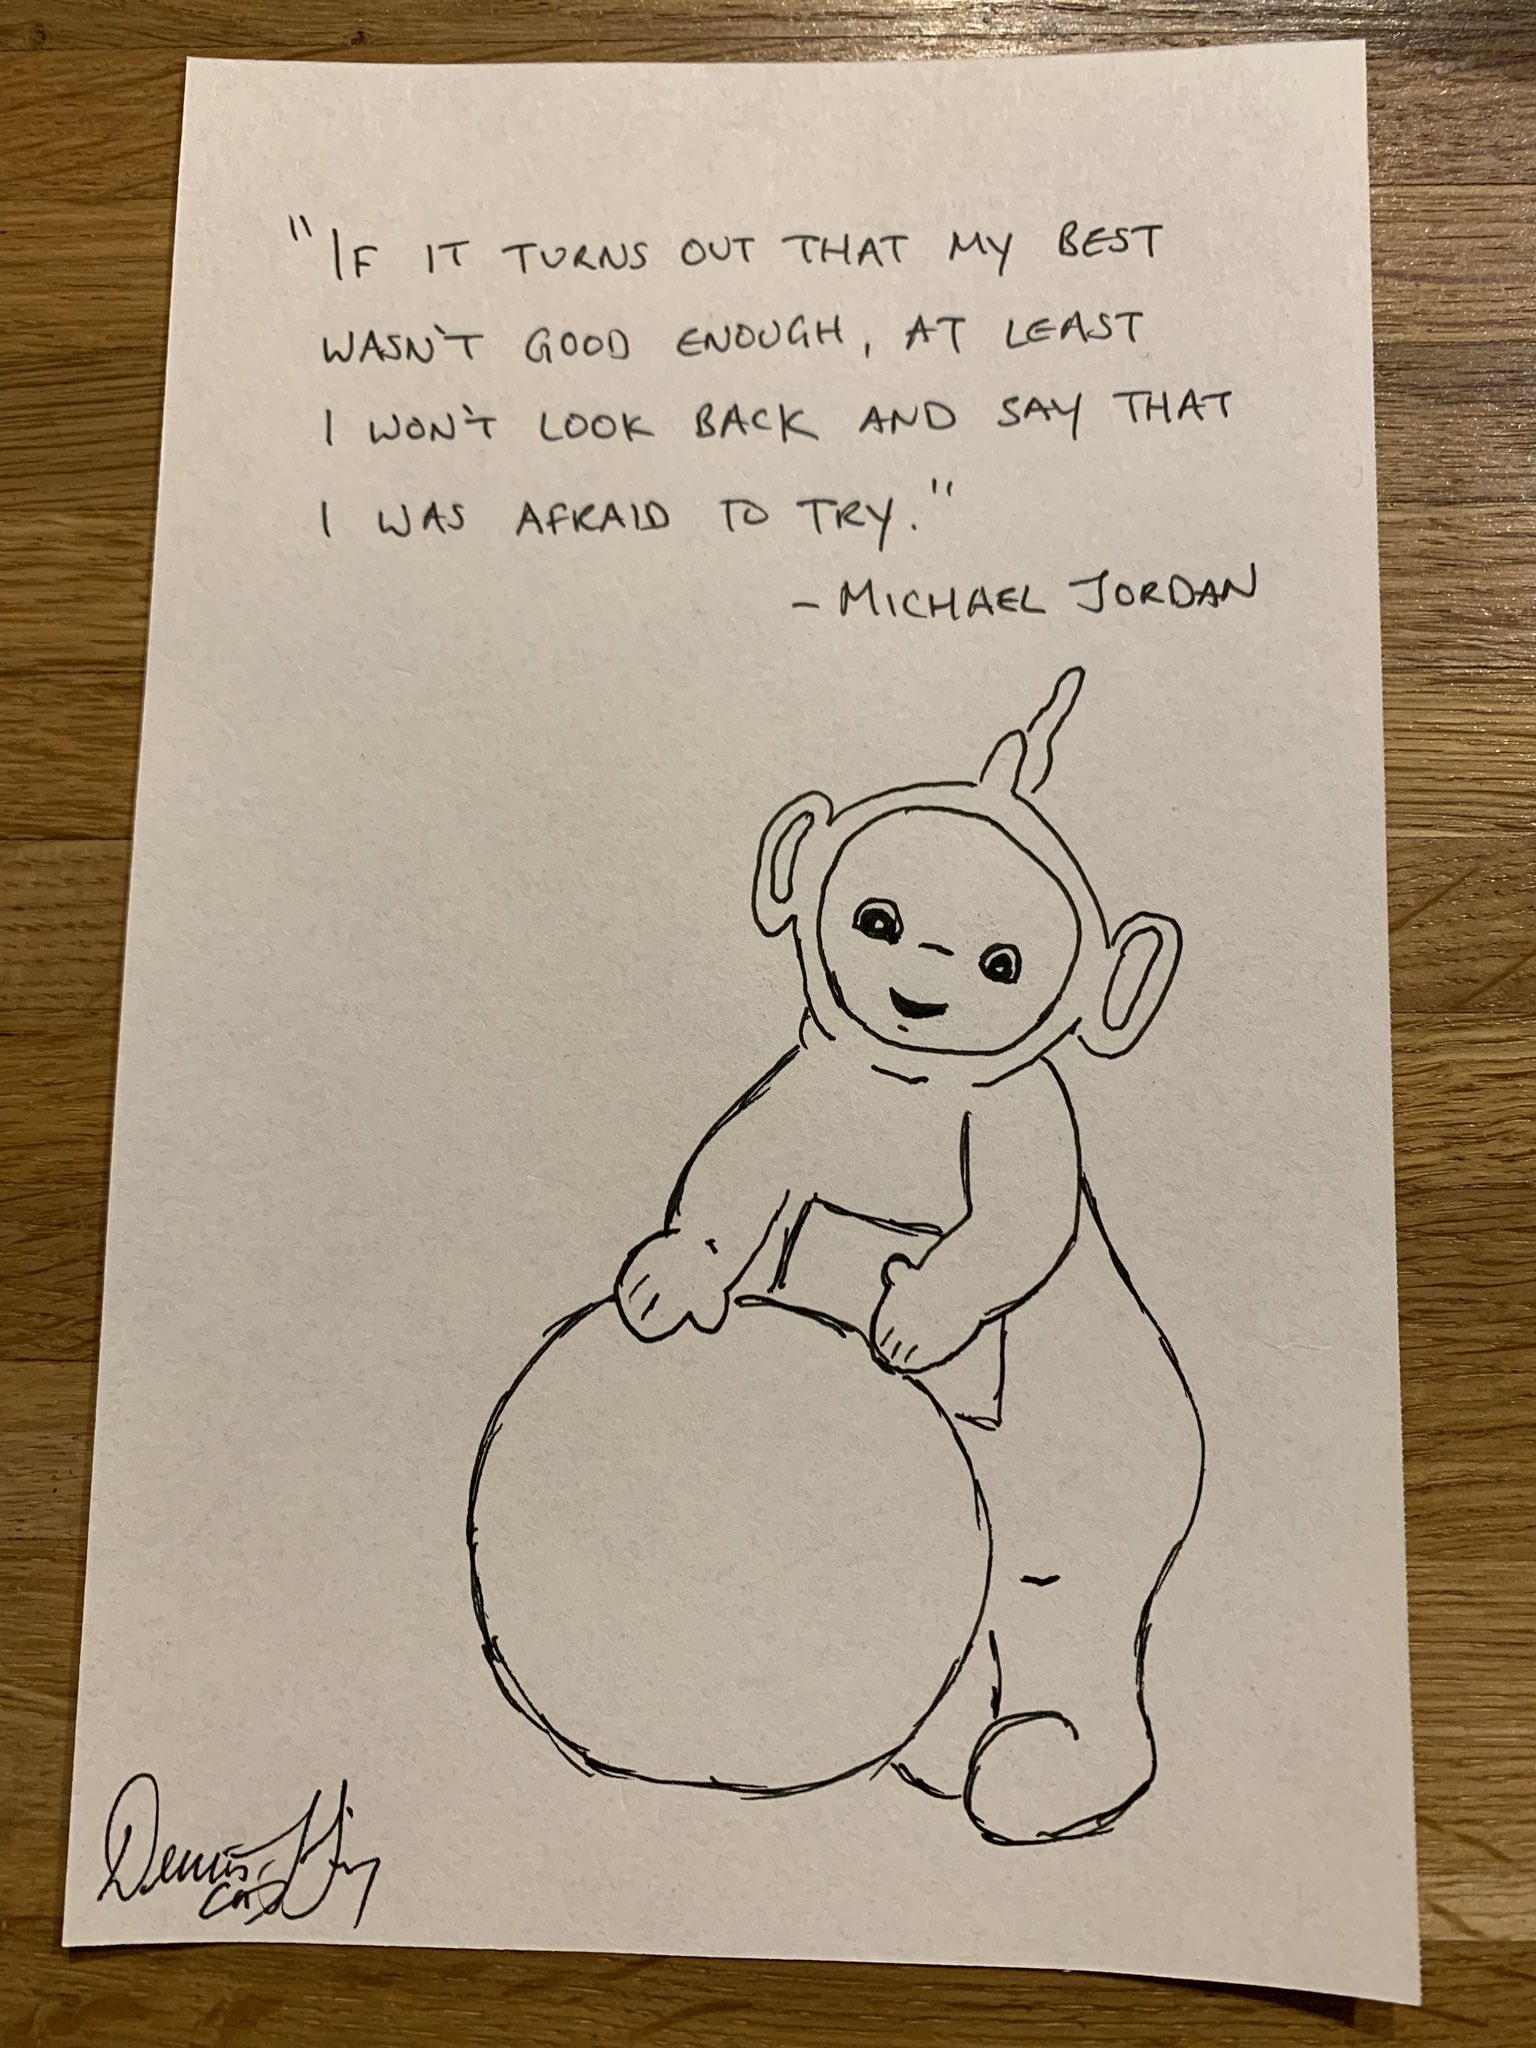 "IF IT TURNS OUT THAT MY BEST
WASN'T GOOD ENOUGH, AT LEAST
I WON'T LOOK BACK AND SAY THAT
I WAS AFRAID TO TRY."
- MICHAEL JORDAN